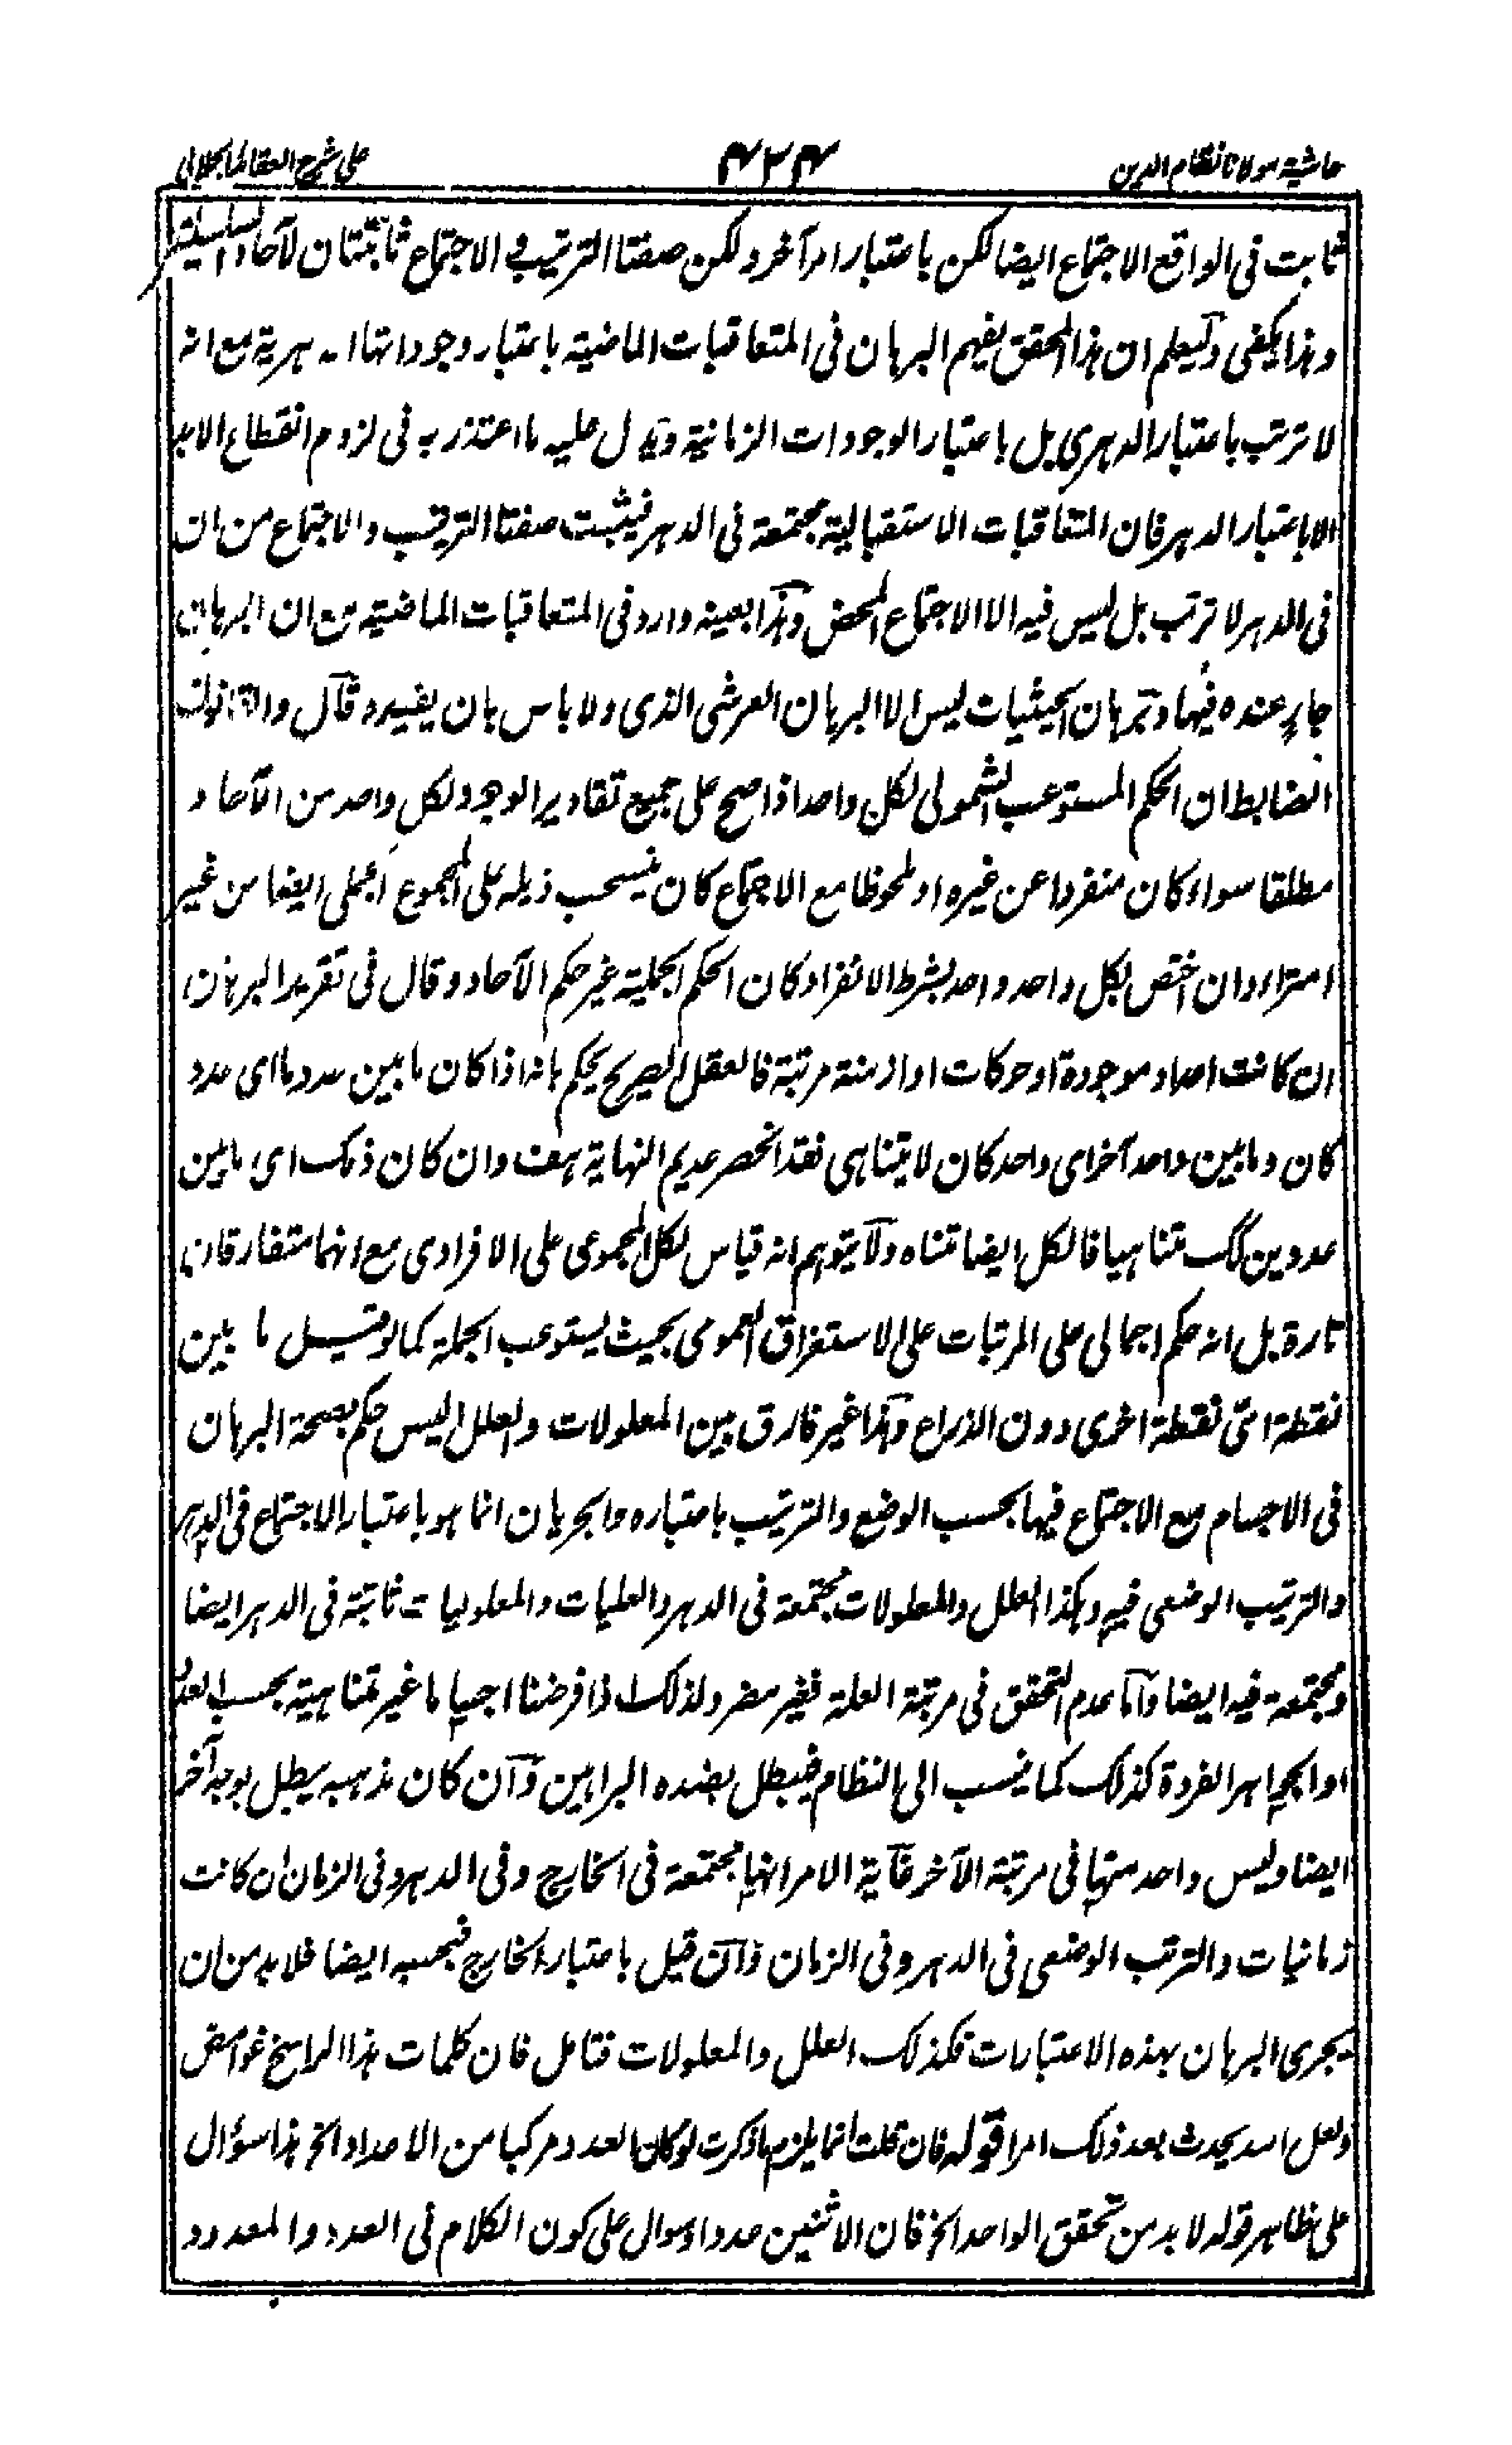 حاشية مولانا نظام الدين
٤٢٤
على شرح العقائد الجلالى
ثابت فى الواقع الاجتماع ايضا لكن باعتبار امر آخر ولكن صفتا الترتيب و الاجتماع ثابتتان لآحاد السلسلة
وهذا يكفى وليعلم ان هذا المحقق يفهم البرهان فى المتعاقبات الماضية باعتبار وجوداتها ا هرية مع انه
لا ترتب باعتبار الدهرى بل باعتبار الوجودات الزمانية ويدل عليه ما اعتذر به فى لزوم انقطاع الابد
الا باعتبار الدهر فان المتعاقبات الاستقبالية مجتمعة فى الدهر فيثبت صفتا الترتيب والاجتماع من ان
فى الدهر لا ترتب بل ليس فيه الا الاجتماع المحض وهذا بعينه وارد فى المتعاقبات الماضية مع ان البرهان
جار عنده فيها وبرهان الحيثيات ليس الا البرهان العرشى الذى ولا باس بان يفيده قال والقانون
الضابط ان الحكم المستوعب الشمولى لكل واحد اذا صح على جميع تقادير الوجود لكل واحد من الآحاد
مطلقا سواء كان منفردا عن غيره او ملحوظا مع الاجتماع كان ينسحب ذيله على المجموع الجملى ايضا من غير
امتراء وان اختص بكل واحد واحد بشرط الانفراد كان الحكم الجملية غير حكم الآحاد وقال فى تقرير البرهان
ان كانت اعداد موجودة او حركات او ازمنة مرتبة فالعقل الصريح يحكم بانه اذا كان ما بين عدد ما اى عدد
كان وما بين واحد آخر اى واحد كان لا يتناهى فقد انحصر عديم النهاية هف وان كان ذلك اى ما بين
عددين كك متناهيا فالكل ايضا متناه ولا يتوهم انه قياس لكل المجموعى على الافرادى مع انهما متفارقان
تارة بل انه حكم اجمالى على المرتبات على الاستغراق العمومى بحيث يستوعب الجملة كما لو قيل ما بين
نقطة الى نقطة اخرى دون الذراع وهذا غير فارق بين المعلولات والعلل اليس حكم بصحة البرهان
فى الاجسام مع الاجتماع فيها بحسب الوضع والترتيب باعتباره والجريان انما هو باعتبار الاجتماع فى الدهر
والترتيب الوضعى فيه وهكذا العلل والمعلولات مجتمعة فى الدهر والعليات والمعلوليات ثابتة فى الدهر ايضا
ومجتمعة فيه ايضا واما عدم التحقق فى مرتبة العلة فغير مضر ولذلك اذا فرضنا اجساما غير متناهية بحسب العدد
او الجواهر الفردة كذلك كما ينسب الى النظام فيبطل بهذه البراهين وان كان مذهبه يبطل بوجه آخر
ايضا وليس واحد منها فى مرتبة الآخر غاية الامر انها مجتمعة فى الخارج وفى الدهر وفى الزمان ان كانت
زمانيات والترتب الوضعى فى الدهر وفى الزمان وان قيل باعتبار الخارج فبحسبه ايضا فلا بد من ان
يجرى البرهان بهذه الاعتبارات فكذلك العلل والمعلولات فتامل فان كلمات هذا الراسخ غوامض
ولعل الله يحدث بعد ذلك امرا قوله فان قلت انما يلزم ما ذكرت لو كان العدد مركبا من الاعداد الخ هذا سؤال
على ظاهر قوله لا بد من تحقق الواحد الخ فان الاثنين عدد او سوال على كون الكلام فى العدد والمعدود